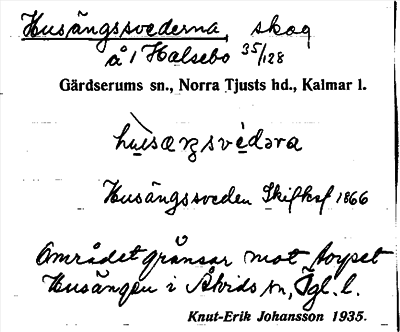 Husängssvederna, skog
å 1 Halsebo 35/128
Gärdserums sn., Norra Tjusts hd., Kalmar l.
Husängssveden Skifkf 1866
Området gränsar mot torpet
Husängen i Åtvids sn, Ögl. l.
Knut-Erik Johansson 1935.